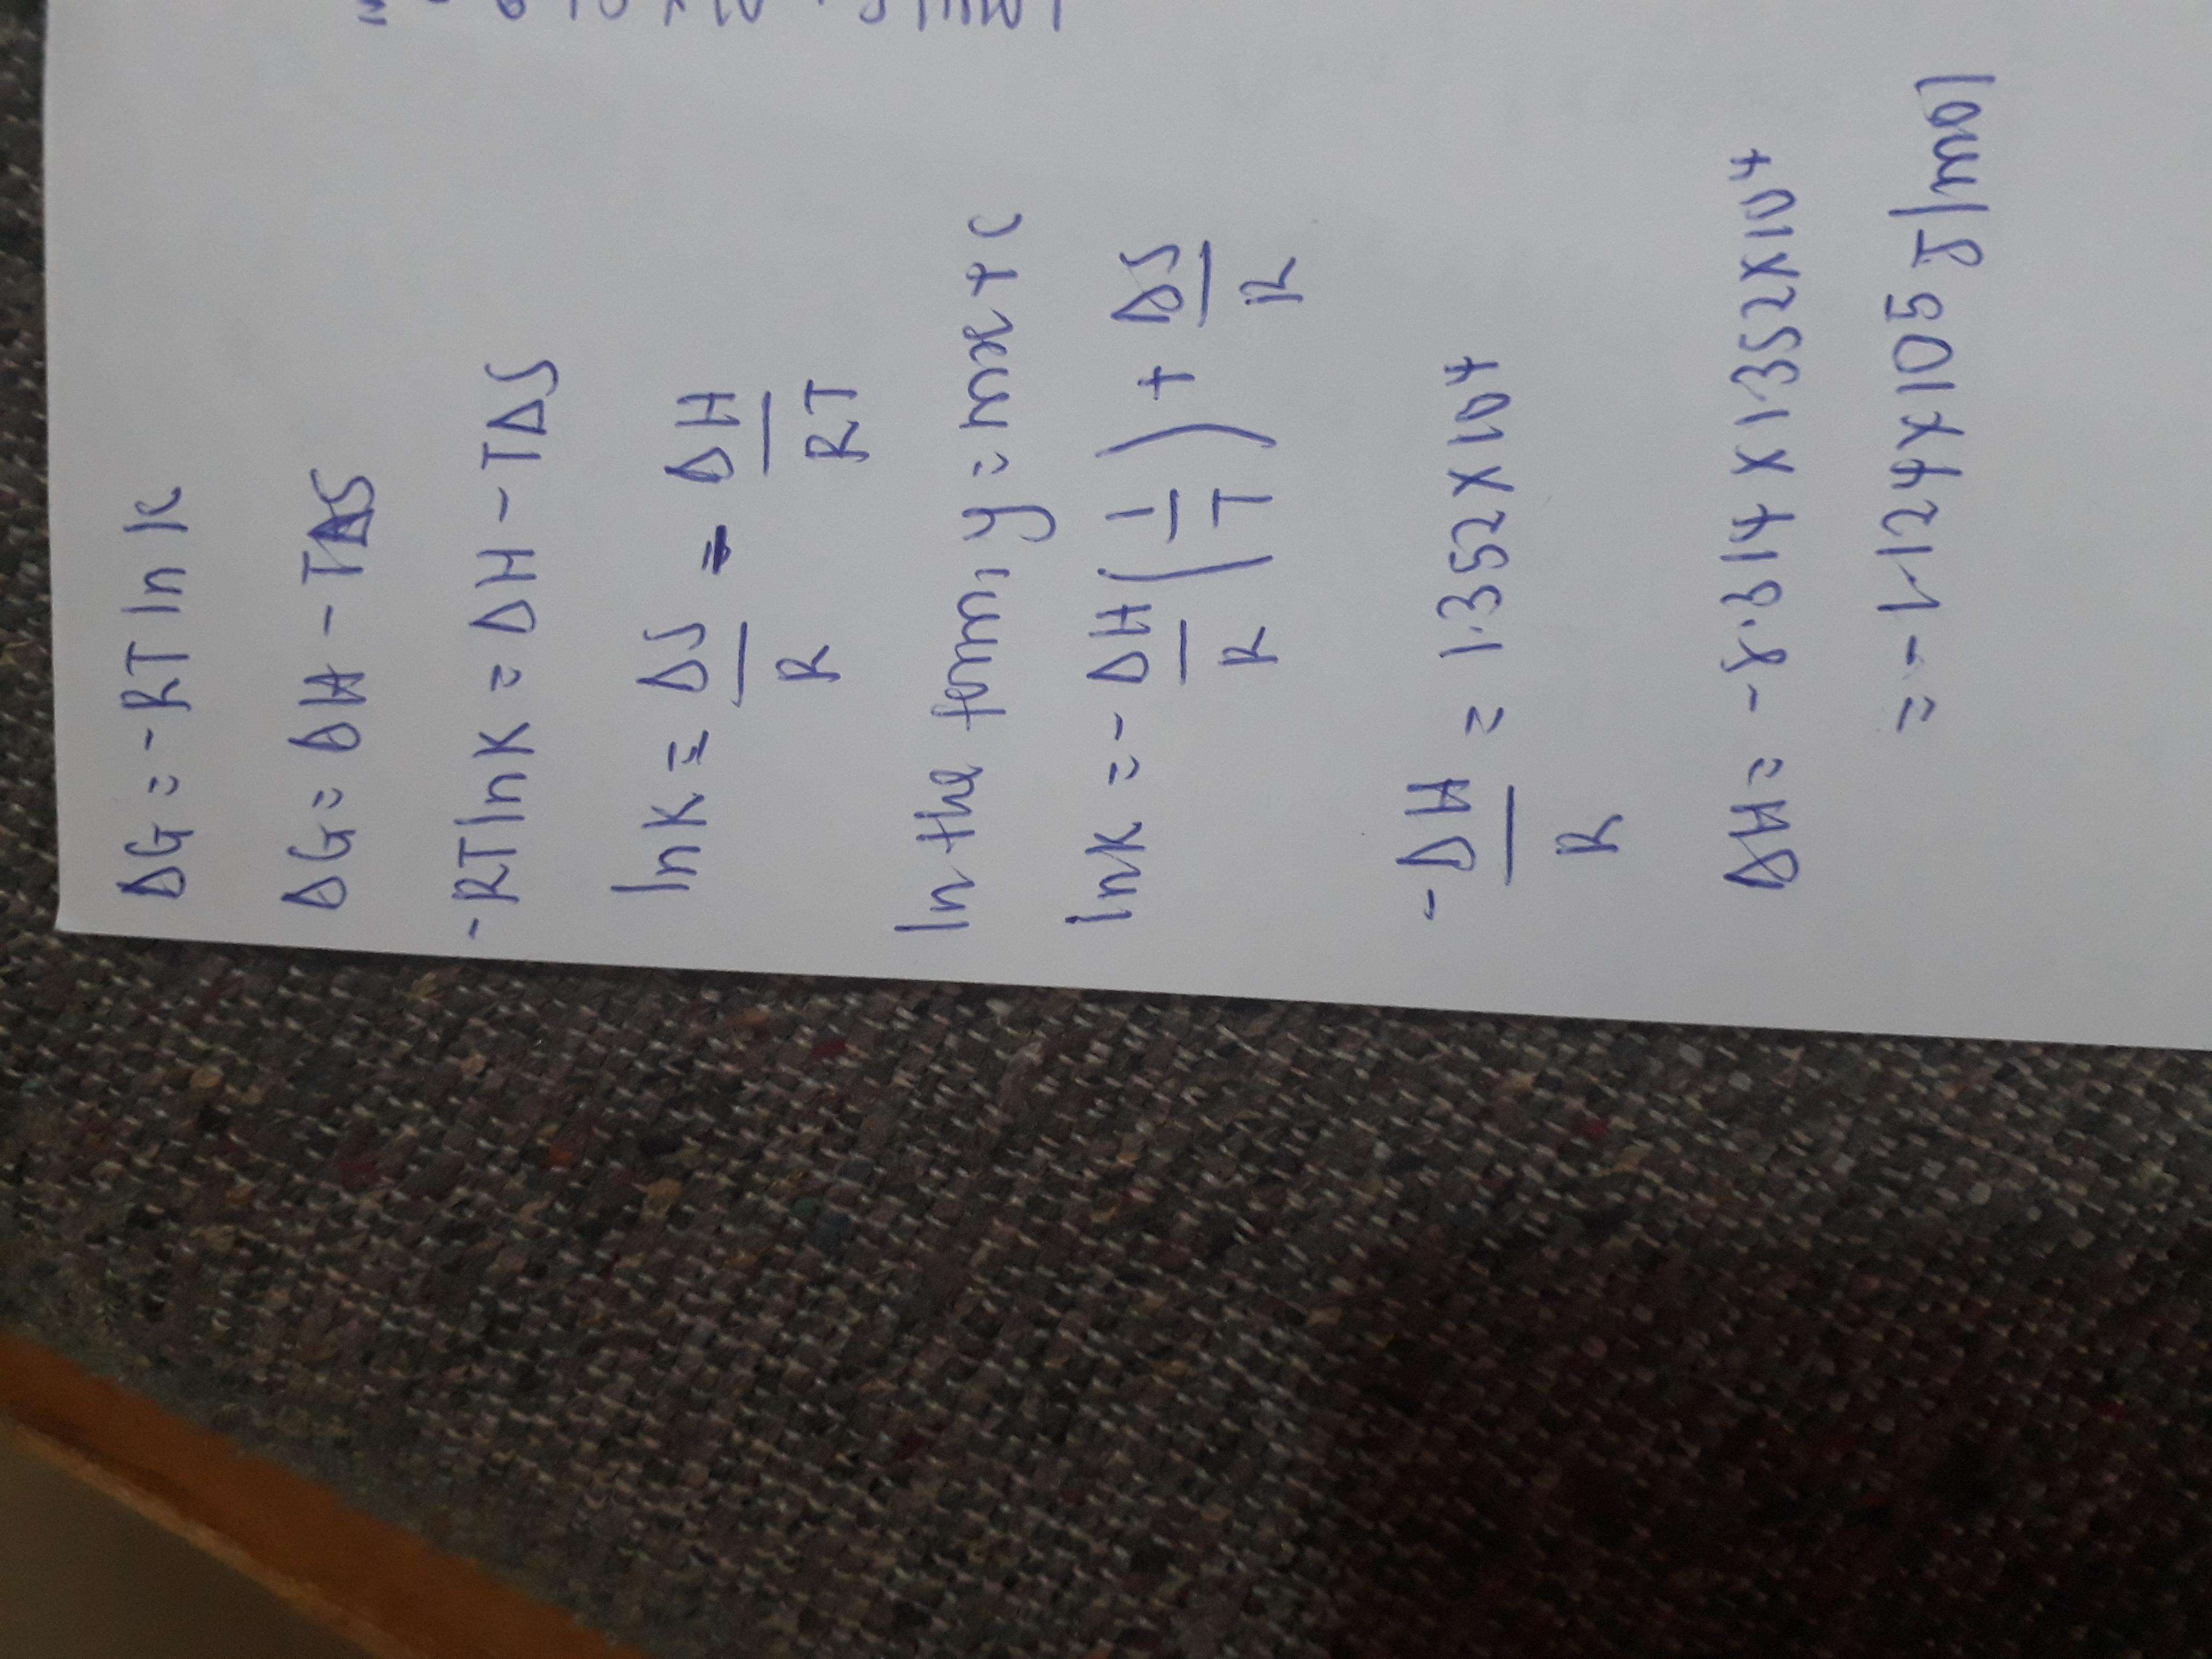 ΔG = -RT ln K
ΔG = ΔH - TΔS
-RT ln K = ΔH - TΔS
ln K = ΔS/R - ΔH/RT
In the form, y = mx + c
ln K = -ΔH/R (1/T) + ΔS/R
-ΔH/R = 1.352 x 10^4
ΔH = -8.314 x 1.352 x 10^4
= -1.124 x 10^5 J/mol